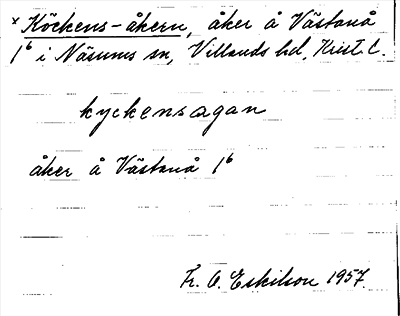 × Köckens-åkern, åker å Västanå
1⁶ i Näsums sn, Villands hd, Krist. l.
kyckensagan
åker å Västanå 1⁶
Fr. O. Eskilson 1957.